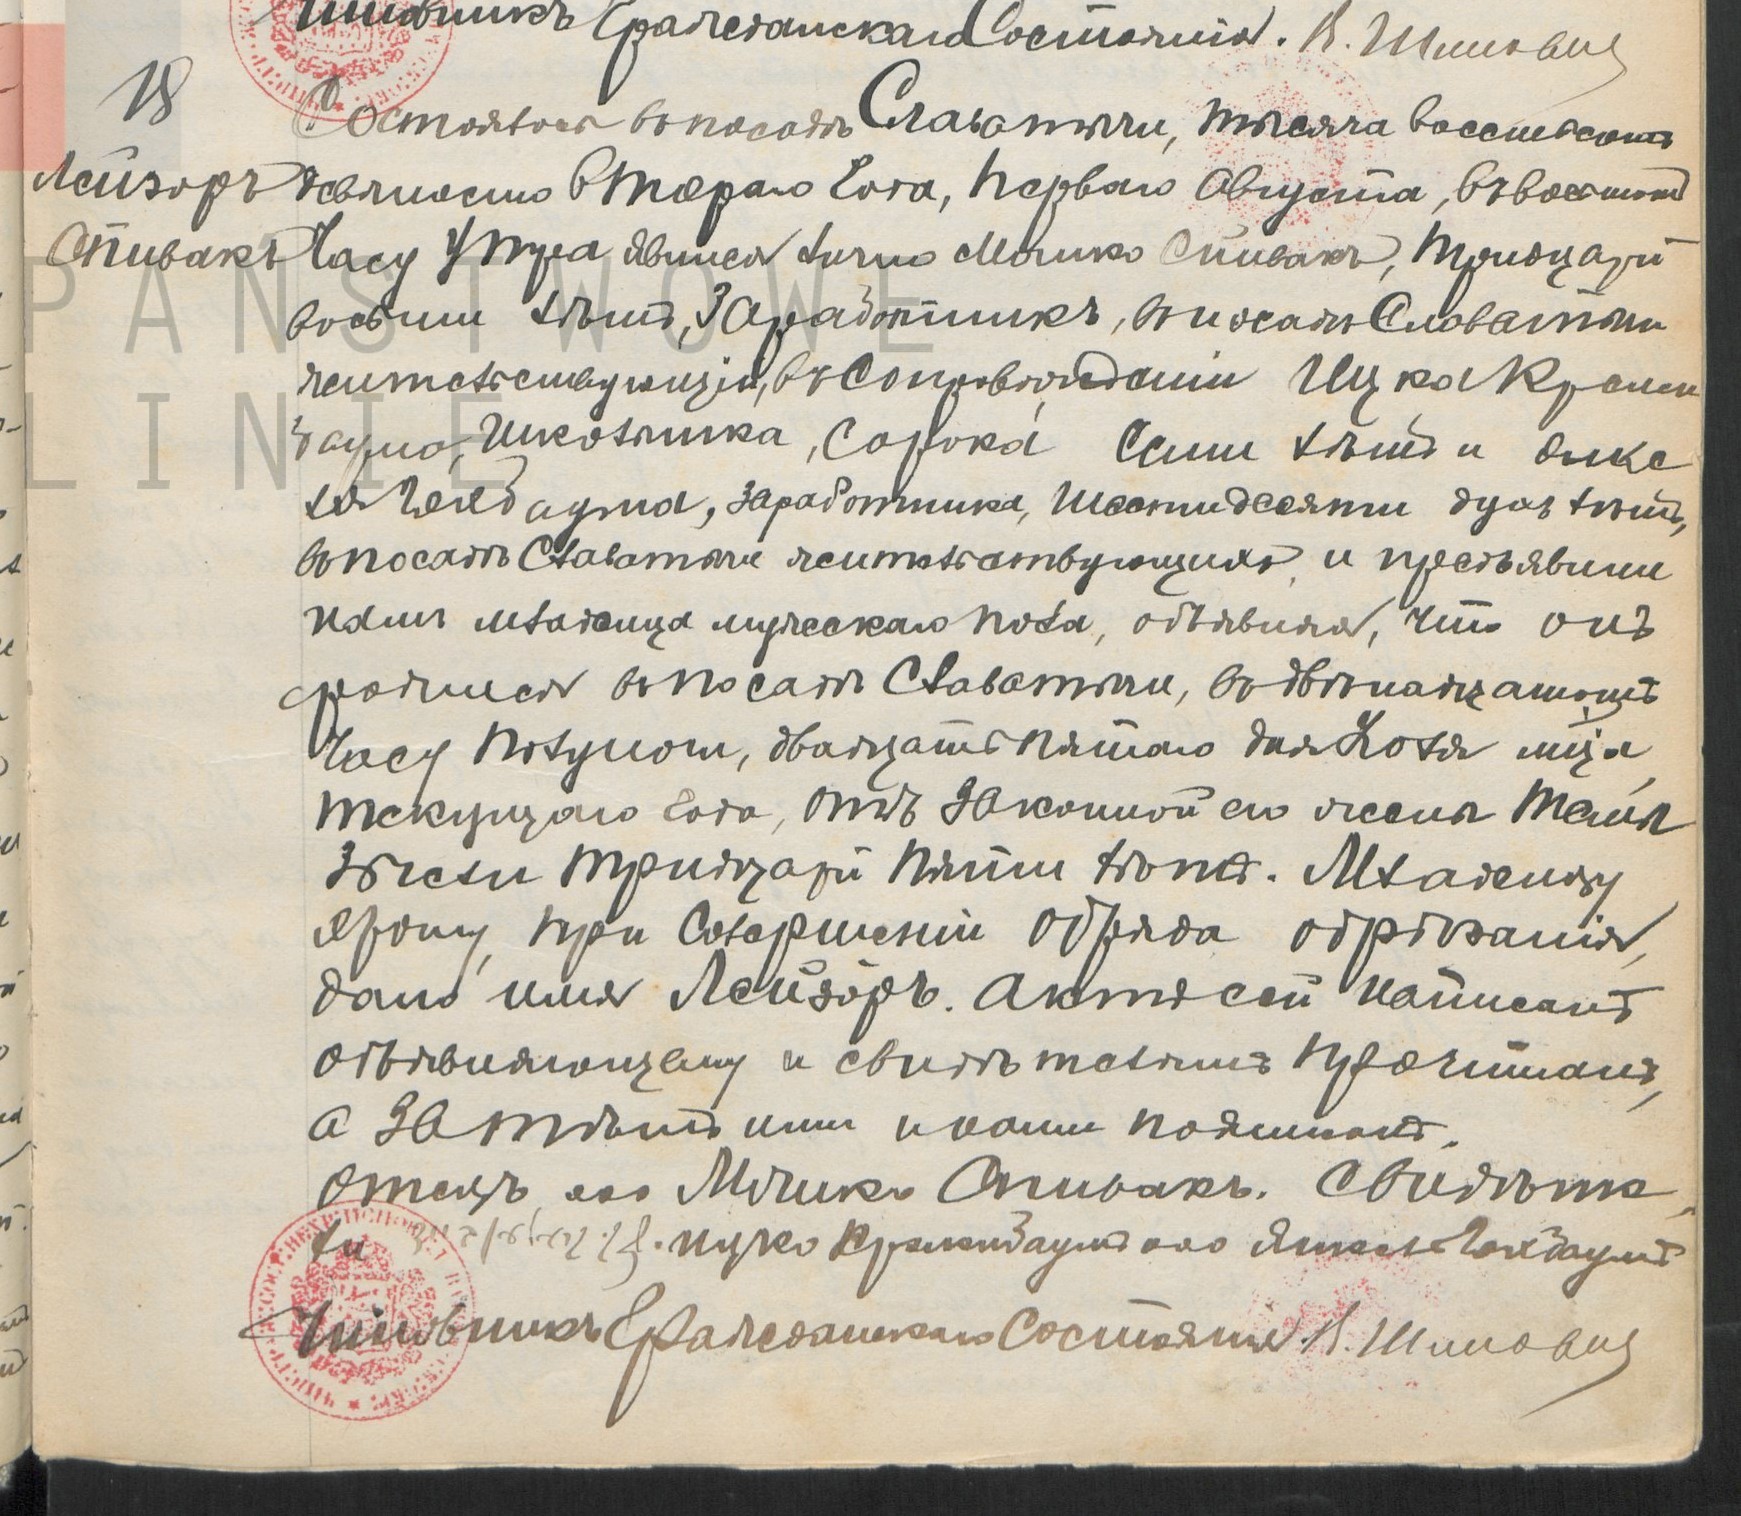 Чиновникъ Гражданскаго Состоянія. В. Шимовиц
18
Состоялось въ посадѣ Славатычи, тысяча восемьсотъ
Лейзоръ девяносто втораго года, перваго Августа, въ восьмомъ
Спивакъ часу утра явился лично Мошко Спивакъ, тридцати
восьми лѣтъ, заработникъ, въ посадѣ Славатычи
жительствующій, въ сопровожденіи Ицка
Школьника, сорока семи лѣтъ и Янке
ля Гельбаума, заработника, шестидесяти двухъ лѣтъ,
въ посадѣ Славатычи жительствующихъ, и предъявилъ
намъ младенца мужескаго пола, объявляя, что онъ
родился въ посадѣ Славатычи, въ двѣнадцатомъ
часу полуночи, двадцать пятаго дня Іюля м-ца
текущаго года, отъ законной его жены
тридцати пяти лѣтъ. Младенцу
этому, при совершеніи обряда обрѣзанія,
дано имя Лейзоръ. Актъ сей написанъ
объявляющему и свидѣтелямъ прочитанъ,
а затѣмъ ими и нами подписанъ.
Отецъ Мошко Спивакъ. Свидѣте
ли Ицко Янкель Гельбаумъ
Чиновникъ Гражданскаго Состоянія В. Шимовиц
PAŃSTWOWE
LINIE